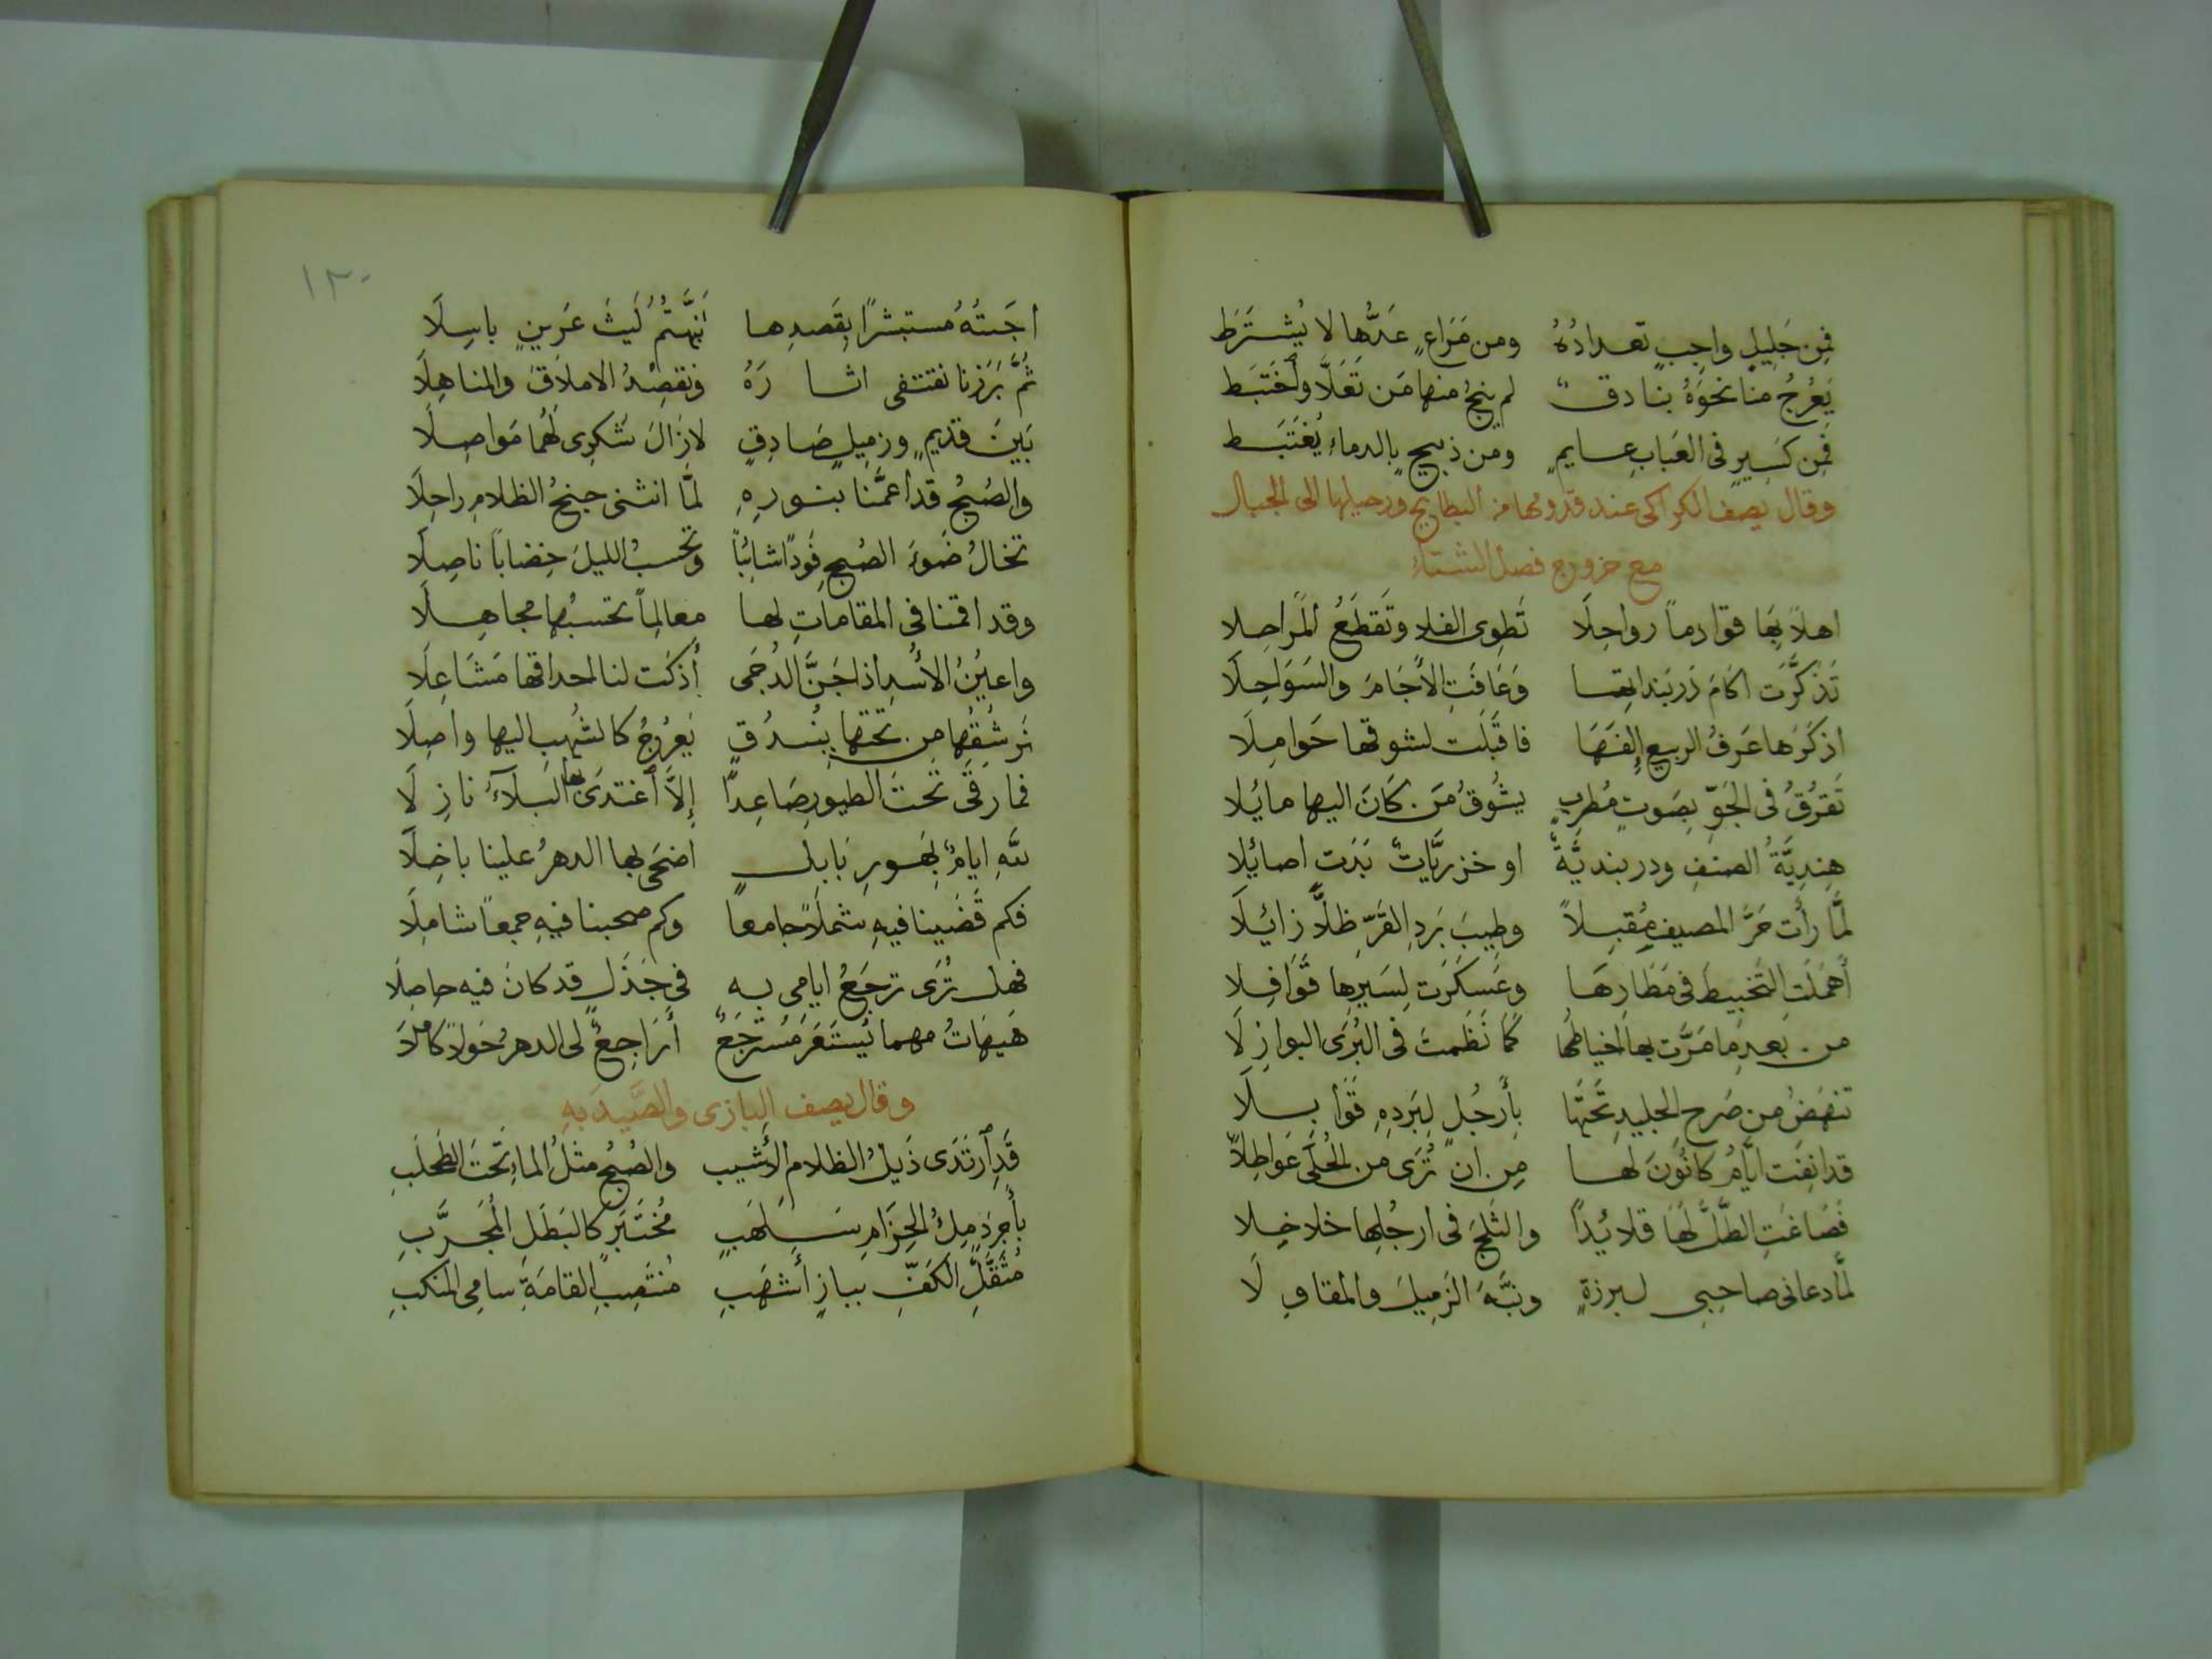 فَمِن جَلِيلٍ واجِبٍ تعدادُهُ ومن مَرَاعٍ عَدُّها لا يُشترَط
يَعرُجُ منا نحوَهُ بنادقٌ لم ينجُ منها مَن تَعَلَّا وَٱختَبَط
فمِن كَسِيرٍ فى العُبابِ عايمٍ ومن ذبيحٍ بالدماءِ يُغتَبَط
وقال يصف الكراكى عند قدومها من البطايح ورحيلها الى الجبال
مع خروج فصل الشتاء
اهلاً بِهَا قوادماً رواحِلَا تَطوِى الفلا وتَقطَعُ المَراحِلا
تَذَكَّرَت آكامَ دَربَنداتِها وَعَافَتِ الآجَامَ والسَوَاحِلَا
اذكَرَها عَرفُ الربيعِ إِلفَهَا فاقبَلَت لشوقها حَوامِلَا
تَفرُقُ فى الجَوِّ بِصَوتٍ مُطرِبٍ يشُوقُ مَن كَانَ اليها مائلا
هِندِيَّةُ الصنفِ ودربنديَّةٌ او خزريَّاتٌ بَدَت اصائلا
لمَّا رأَت حَرَّ المصيفِ مُقبِلاً وطِيبَ بَردِ القَرِّ ظلاًّ زائلَا
أَهمَلَتِ التَخبيطَ فى مَطَارِهَا وعَسكَرَت لِسَيرِها قَوَافِلا
من بعدِ ما مَرَّت بها اخياطُها كَمَا نَظَمتَ فى البُرَى البوازِلَا
تنهَضُ من صَرحِ الجليدِ تحتَها بِأَرجُلٍ لِبَردِهِ قَوَابِلَا
قد انِفَت ايَّامُ كانُونَ لها مِن ان تُرَى من الحُلَى عَواطِلَا
فَصَاغَتِ الطَّلَّ لَهَا قلائداً والثَلجَ فى ارجُلِها خلاخِلا
لمَّا دعانى صاحِبى لبرزةٍ ونبَّهَ الزَمِيلَ والمقاوِلَا
١٣٠
اجَبتُهُ مُستبشراً بِقَصدِها نَبَّهتُمُ لَيثَ عَرينٍ باسِلَا
ثُمَّ بَرَزنا نقتفى اثارَهُ ونقصِدُ الاملَاقَ والمناهِلَا
بَينَ قديمٍ وزمِيلٍ صَادِقٍ لازالَ شُكرِى لَهُما مَواصِلَا
والصُبحُ قد أعمَّنا بنورِهِ لمَّا انثنى جنحُ الظلامِ راحِلَا
تخالُ ضَوءَ الصُبحِ فَوداً شائباً وتحسبُ الليلَ خِضاباً ناصِلَا
وقد اقمنا فى المقاماتِ لها معالِماً تحسبُها مجاهِلَا
واعيُنُ الأُسدِ اذا جَنَّ الدُجَى أَذكَت لنا احداقُها مَشَاعِلَا
نَرشُقُها مِن تحتِها بِبُندُقٍ يَعرُجُ كالشُهبِ اليها واصِلَا
فما رَقَى تحتَ الطيورِ صَاعِداً إِلاَّ ٱغتدَى بها البَلَاءُ نازِلَا
للهِ ايامٌ بِهَورِ بَابِلٍ اضحَى بها الدهرُ علينا باخِلَا
فكم قَضَينا فيهِ شملاً جامعاً وكم صحبنا فيهِ جمعاً شامِلَا
فهل تُرَى ترجَعُ ايامِى بهِ فى جَذَلٍ قد كانَ فيه حاصِلَا
هَيهَاتُ مهما يُستَعَر مُستَرجَعٌ أَرَاجِعٌ لى الدهرُ حَولاً كامِلاَ
وقال يصف البازى والصَّيدَ بهِ
قَدِ ٱرتَدَى ذَيلُ الظلامِ الأَشيَبِ والصُبحُ مثلُ الماءِ تحتَ الطُحلُبِ
بأَجرَدٍ مِلءُ الحِزَامِ سَلهَبِ مُختَبَرٍ كالبَطَلِ المُجَرَّبِ
مُثَقَّلِ الكَفِّ ببازٍ أَشهَبِ مُنتَصِبِ القامَةِ سامِى المَنكبِ